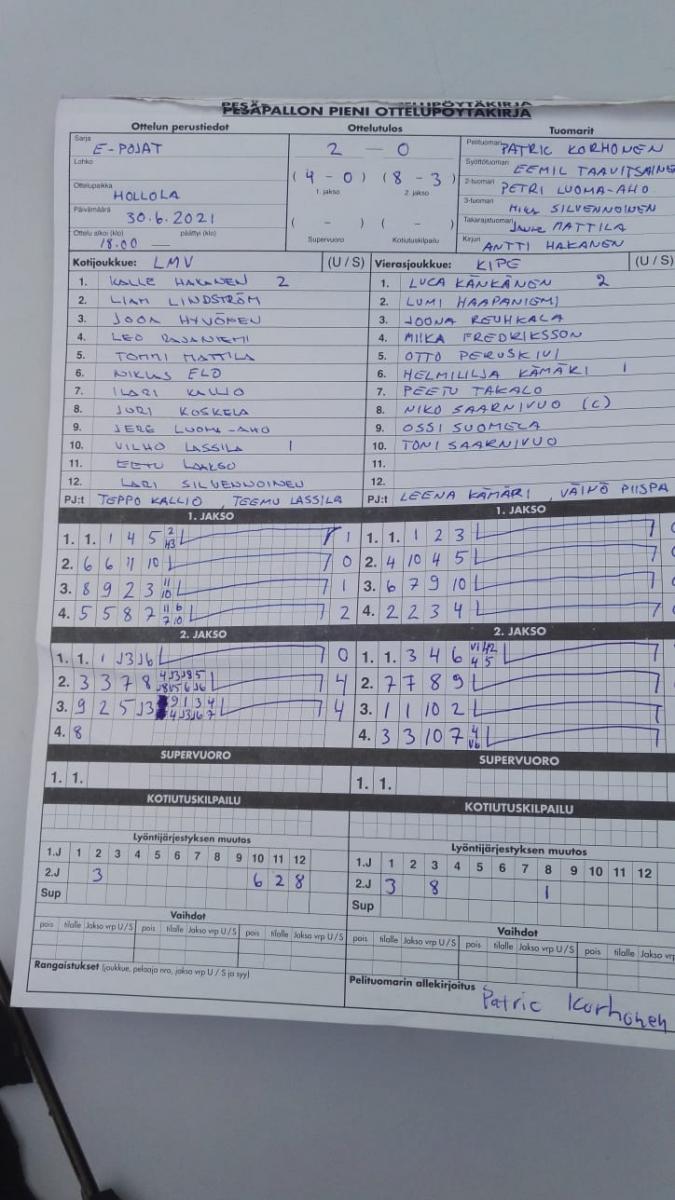 PESÄPALLON PIENI OTTELUPÖYTÄKIRJA
Ottelun perustiedot Ottelutulos Tuomarit
Sarja E-POJAT
2 — 0
Pelituomari PATRIC KORHONEN
Lohko
(4 - 0) (8 - 3)
1. jakso 2. jakso
Syöttötuomari EEMIL TAAVITSAINE
Ottelupaikka HOLLOLA
2-tuomari PETRI LUOMA-AHO
Päivämäärä 30.6.2021
( - ) ( - )
Supervuoro Kotiutuskilpailu
3-tuomari SILVENNOINEN
Takarajatuomari MATTILA
Ottelu alkoi (klo) 18.00 — päättyi (klo)
Kirjuri ANTTI HAKANEN
Kotijoukkue: LMV (U / S)
1. KALLE HAKANEN 2
2. LIAM LINDSTRÖM
3. JOOA HYVÖNEN
4. LEO RAJANIEMI
5. TOMMI MATTILA
6. NIKLAS ELO
7. ILARI KALLIO
8. JURI KOSKELA
9. JERE LUOMA-AHO
10. VILHO LASSILA 1
11. EETU LAAKSO
12. LARI SILVENNOINEN
PJ:t TEPPO KALLIO TEEMU LASSILA
Vierasjoukkue: KIPE (U / S)
1. LUCA KÄNKÄNEN 2
2. LUMI HAAPANIEMI
3. JOONA REUHKALA
4. MIIKA FREDRIKSSON
5. OTTO PERUSKIVI
6. HELMILILJA KÄMÄRI 1
7. PEETU TAKALO
8. NIKO SAARNIVUO (C)
9. OSSI SUOMELA
10. TONI SAARNIVUO
11.
12.
PJ:t LEENA KÄMÄRI, VÄINÖ PIISPA
1. JAKSO
1. 1. 1 4 5 1
2. 6 6 11 10 0
3. 8 9 2 3 11 10 1
4. 5 5 8 7 11 6 7 10 2
1. JAKSO
1. 1. 1 2 3
2. 4 10 4 5
3. 6 7 9 10
4. 2 2 3 4
2. JAKSO
1. 1. 1 J3 J6 0
2. 3 3 7 8 4
3. 9 2 5 J3 9 1 3 4 4 J3 J6 7 4
4. 8
2. JAKSO
1. 1. 3 4 6
2. 7 7 8 9
3. 1 1 10 2
4. 3 3 10 7 4 V6
SUPERVUORO
1. 1.
SUPERVUORO
1. 1.
KOTIUTUSKILPAILU
KOTIUTUSKILPAILU
Lyöntijärjestyksen muutos
1.J 1 2 3 4 5 6 7 8 9 10 11 12
2.J 3 6 2 8
Sup
Lyöntijärjestyksen muutos
1.J 1 2 3 4 5 6 7 8 9 10 11 12
2.J 3 8 1
Sup
Vaihdot
pois tilalle Jakso vrp U / S pois tilalle Jakso vrp U / S pois tilalle Jakso vrp U / S
Vaihdot
pois tilalle Jakso vrp U / S pois tilalle Jakso vrp U / S pois tilalle Jakso vrp U
Rangaistukset (joukkue, pelaaja nro, jakso vrp U / S ja syy)
Pelituomarin allekirjoitus Patric Korhonen